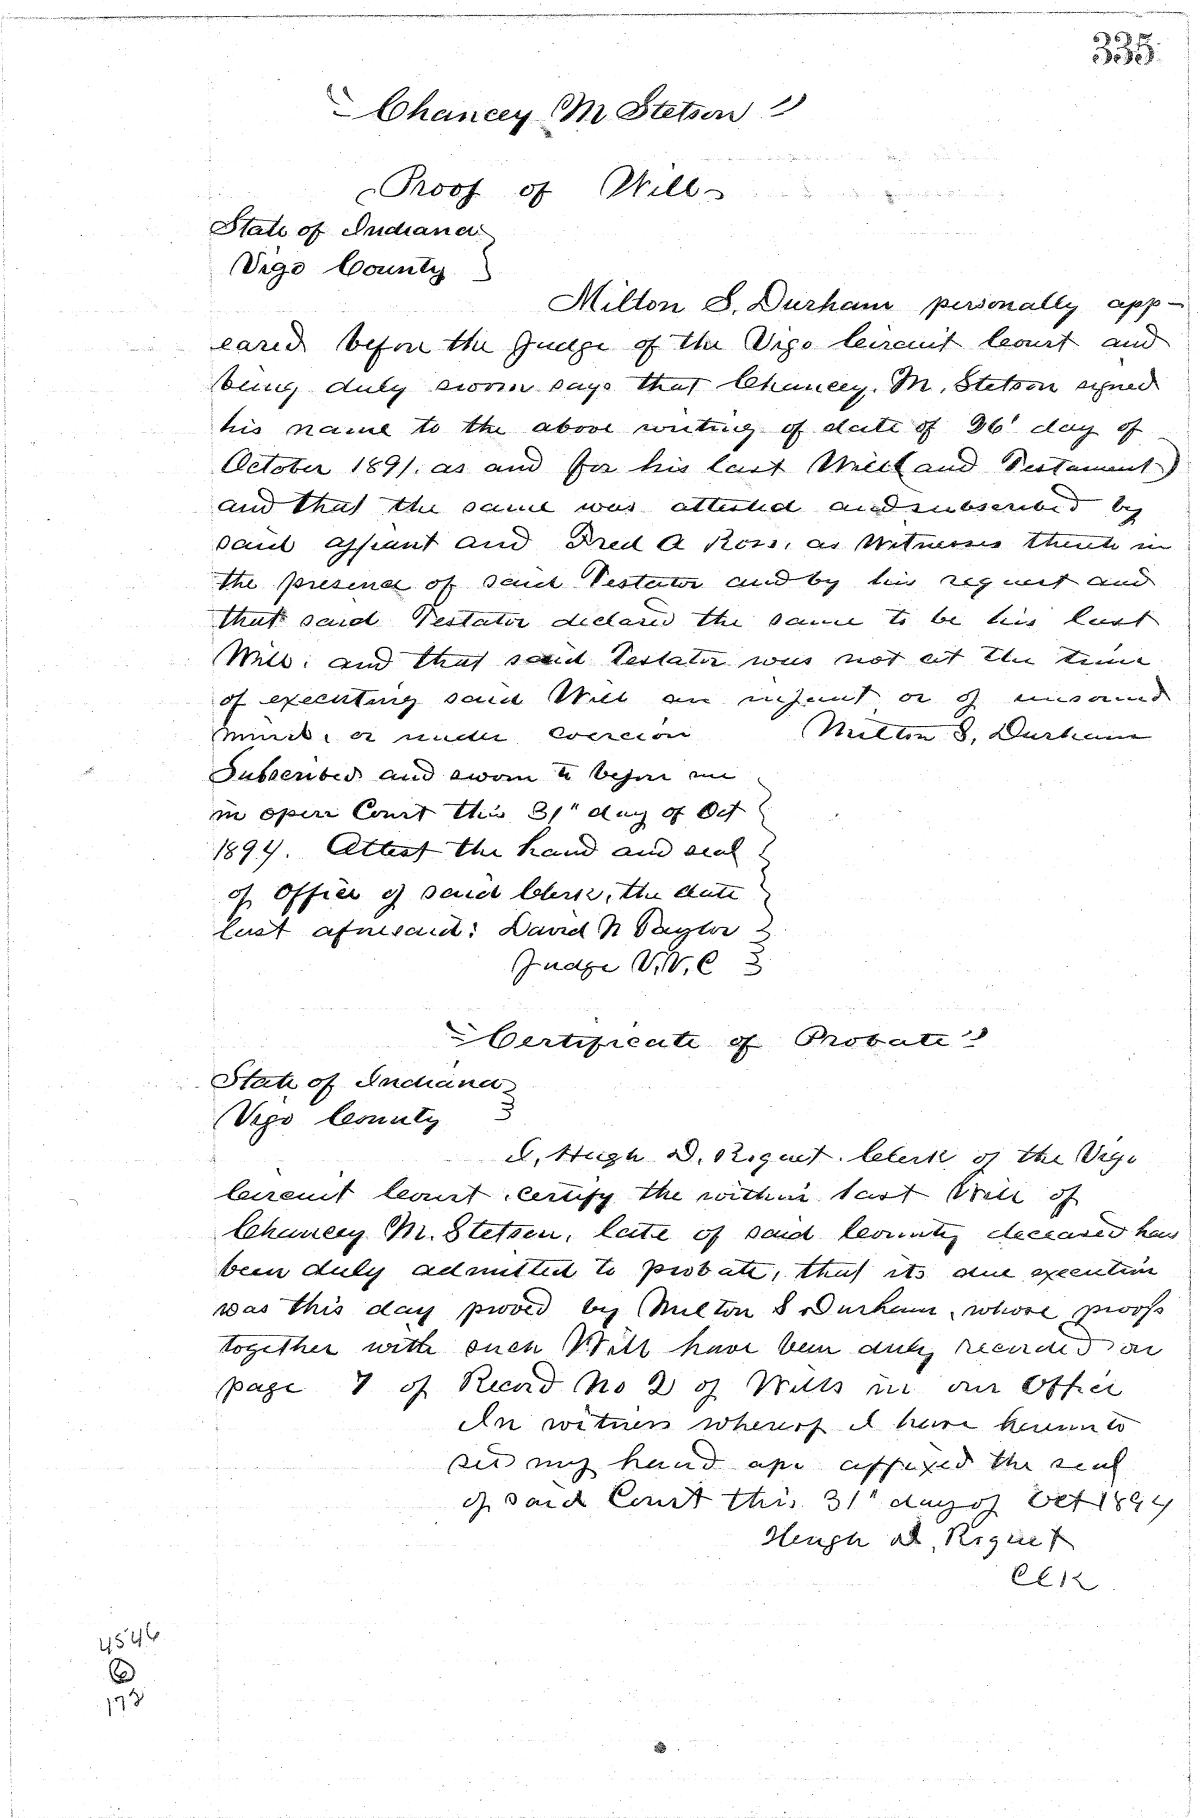 335
"Chancey M Stetson"
"Proof of Will"
State of Indiana
Vigo County
Milton S. Durham personally app-
eared before the Judge of the Vigo Circuit Court and
being duly sworn says that Chancey. M. Stetson signed
his name to the above writing of date of 26' day of
October 1891. as and for his last Will (and Testament)
and that the same was attested and subscribed by
said affiant and Fred A Ross. as Witnesses thereto in
the presence of said Testator and by his request and
that said Testator declared the same to be his last
Will. and that said Testator was not at the time
of executing said Will an infant or of unsound
mind, or under coercion Milton S, Durham
Subscribed and sworn to before me
in open Court this 31" day of Oct
1894. Attest the hand and seal
of office of said Clerk, the date
last aforesaid: David N Taylor
Judge V.V.C
"Certificate of Probate"
State of Indiana
Vigo County
I, Hugh D. Roquet. Clerk of the Vigo
Circuit Court, certify the within last Will of
Chancey M. Stetson, late of said County deceased has
been duly admitted to probate, that its due execution
was this day proved by Milton S Durham, whose proofs
together with such Will have been duly recorded on
page 7 of Record No 2 of Wills in our Office
In witness whereof I have hereunto
set my hand affixed the seal
of said Court this 31" day of Oct 1894
Hugh D, Roquet
Clk
4546
6
173